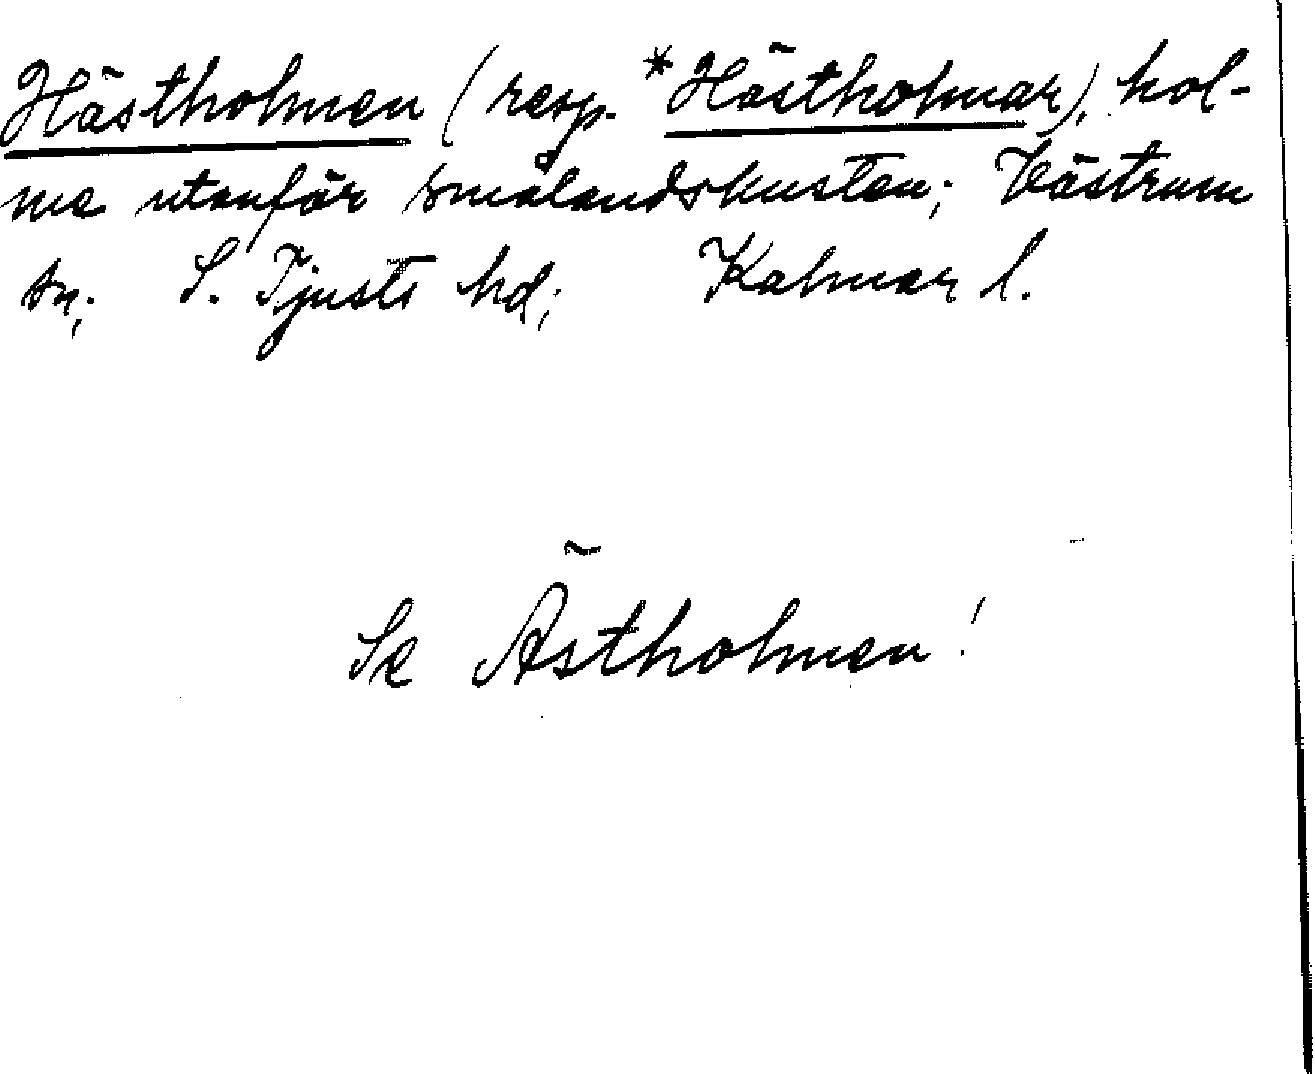 Hästholmen (resp. *Hästholmar), hol-
me utanför smålandskusten; Västrum
sn; S. Tjusts hd; Kalmar l.
Se Ästholmen!